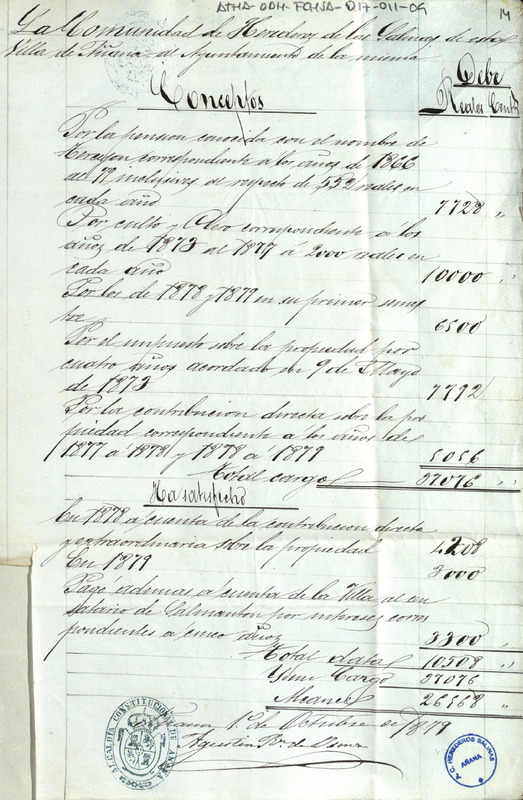 ATHA-DDH-FCHSA-D17-011-09
14
La Comunidad de Herederos de las Salinas de esta
Villa de Añana al Ayuntamiento de la misma
Debe
Conceptos
Reales Cent
Por la pension conocida con el nombre de
correspondiente a los años de 1866
al 79 inclusives al respecto de 552 reales en
cada año 7728 "
Por culto y Clero correspondiente a los
años de 1873 al 1877 á 2000 reales en
cada año 10000 "
Por los de 1878 y 1879 en su primer semes
tre 6500
Por el impuesto sobre la propiedad por
cuatro años acordado en 9 de Mayo
de 1873 7792
Por la contribucion directa sobre la pro
piedad correspondiente a los años de
1877 a 1878 y 1878 a 1879 5056
Total cargo 37076 "
Ha satisfecho
En 1878 a cuenta de la contribucion directa
y extraordinaria sobre la propiedad 4208
En 1879 3000
Pagó ademas a cuenta de la Villa al en
de Salmanton por intereses corres
pondientes a cinco años 3300
Total data 10508 "
Cargo 37076
Alcance 26568 "
1º de Octubre de 1879
Agustin
ALCALDIA CONSTITUCIONAL DE AÑANA
T.C. HEREDEROS SALINAS
AÑANA